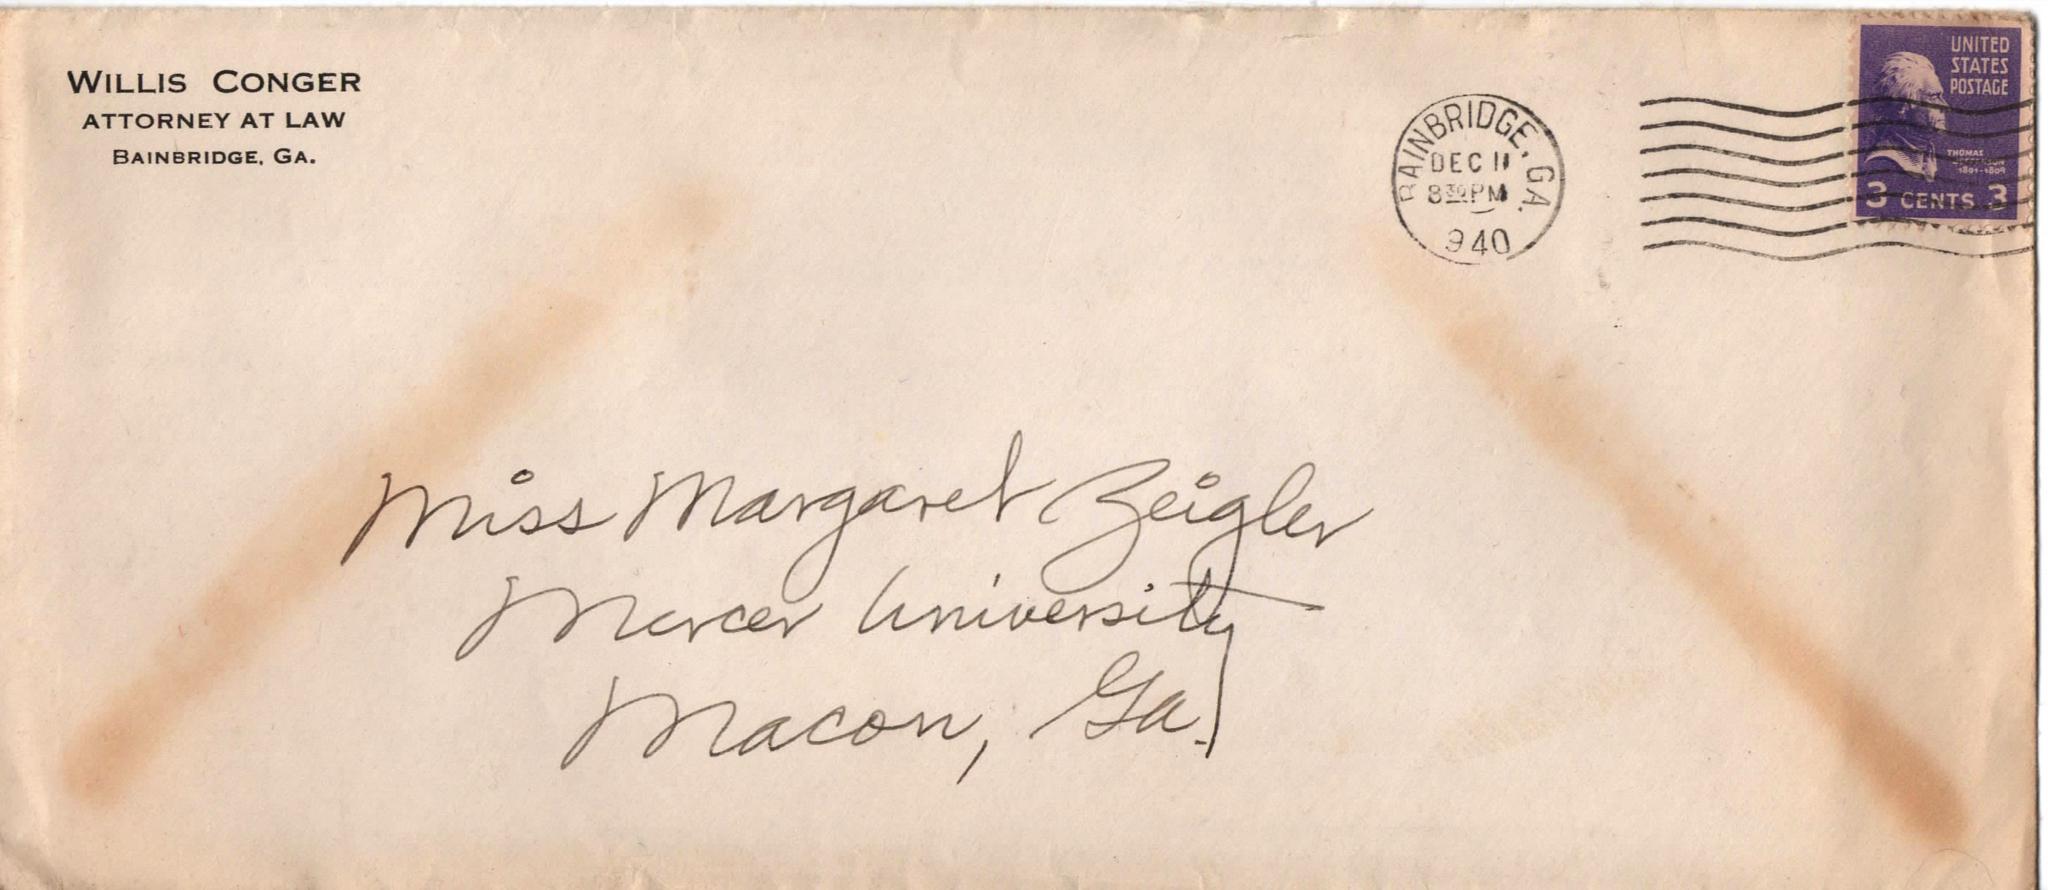 WILLIS CONGER
ATTORNEY AT LAW
BAINBRIDGE, GA.
BAINBRIDGE, GA.
DEC 11
8 30 PM
940
UNITED
STATES
POSTAGE
THOMAS
JEFFERSON
1801-1809
3 CENTS 3
Miss Margaret Zeigler
Mercer University
Macon, Ga.